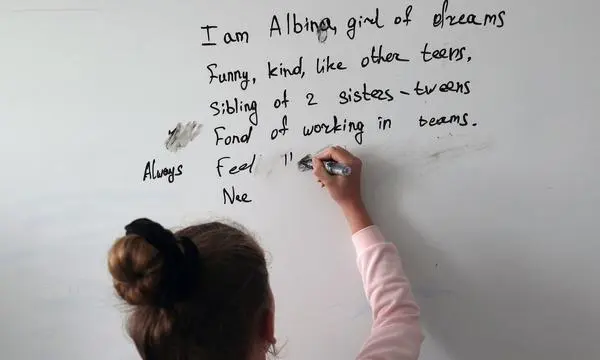 I am Albina, girl of dreams
Funny, kind, like other teens,
Sibling of 2 sisters - tweens
Fond of working in teams.
Always Feel "
Nee